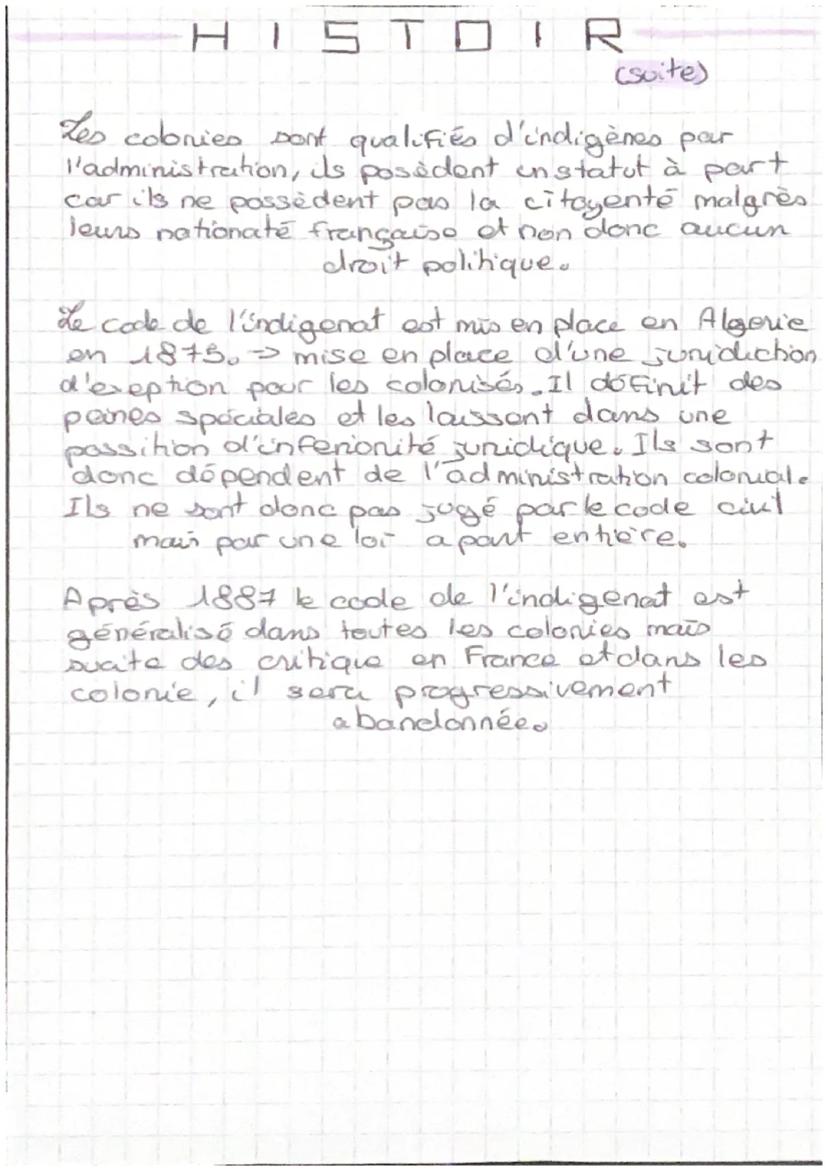 HISTOIR
(suite)
Les colonies sont qualifiés d'indigènes par
l'administration, ils posèdent un statut à part
car ils ne possèdent pas la citoyenté malgrès
leurs nationaté française et non donc aucun
droit politique.
Le code de l'indigenat est mis en place en Algerie
en 1875. => mise en place d'une juridiction
d'exeption pour les colonisés. Il définit des
peines spéciales et les laissent dans une
possition d'inferiorité juridique. Ils sont
donc dépendent de l'administration colonial.
Ils ne sont donc pas jugé par le code civil
mais par une loi a part entière.
Après 1887 le code de l'indigenat est
généralisé dans toutes les colonies mais
suite des critique en France et dans les
colonie, il sera progressivement
abandonnée.